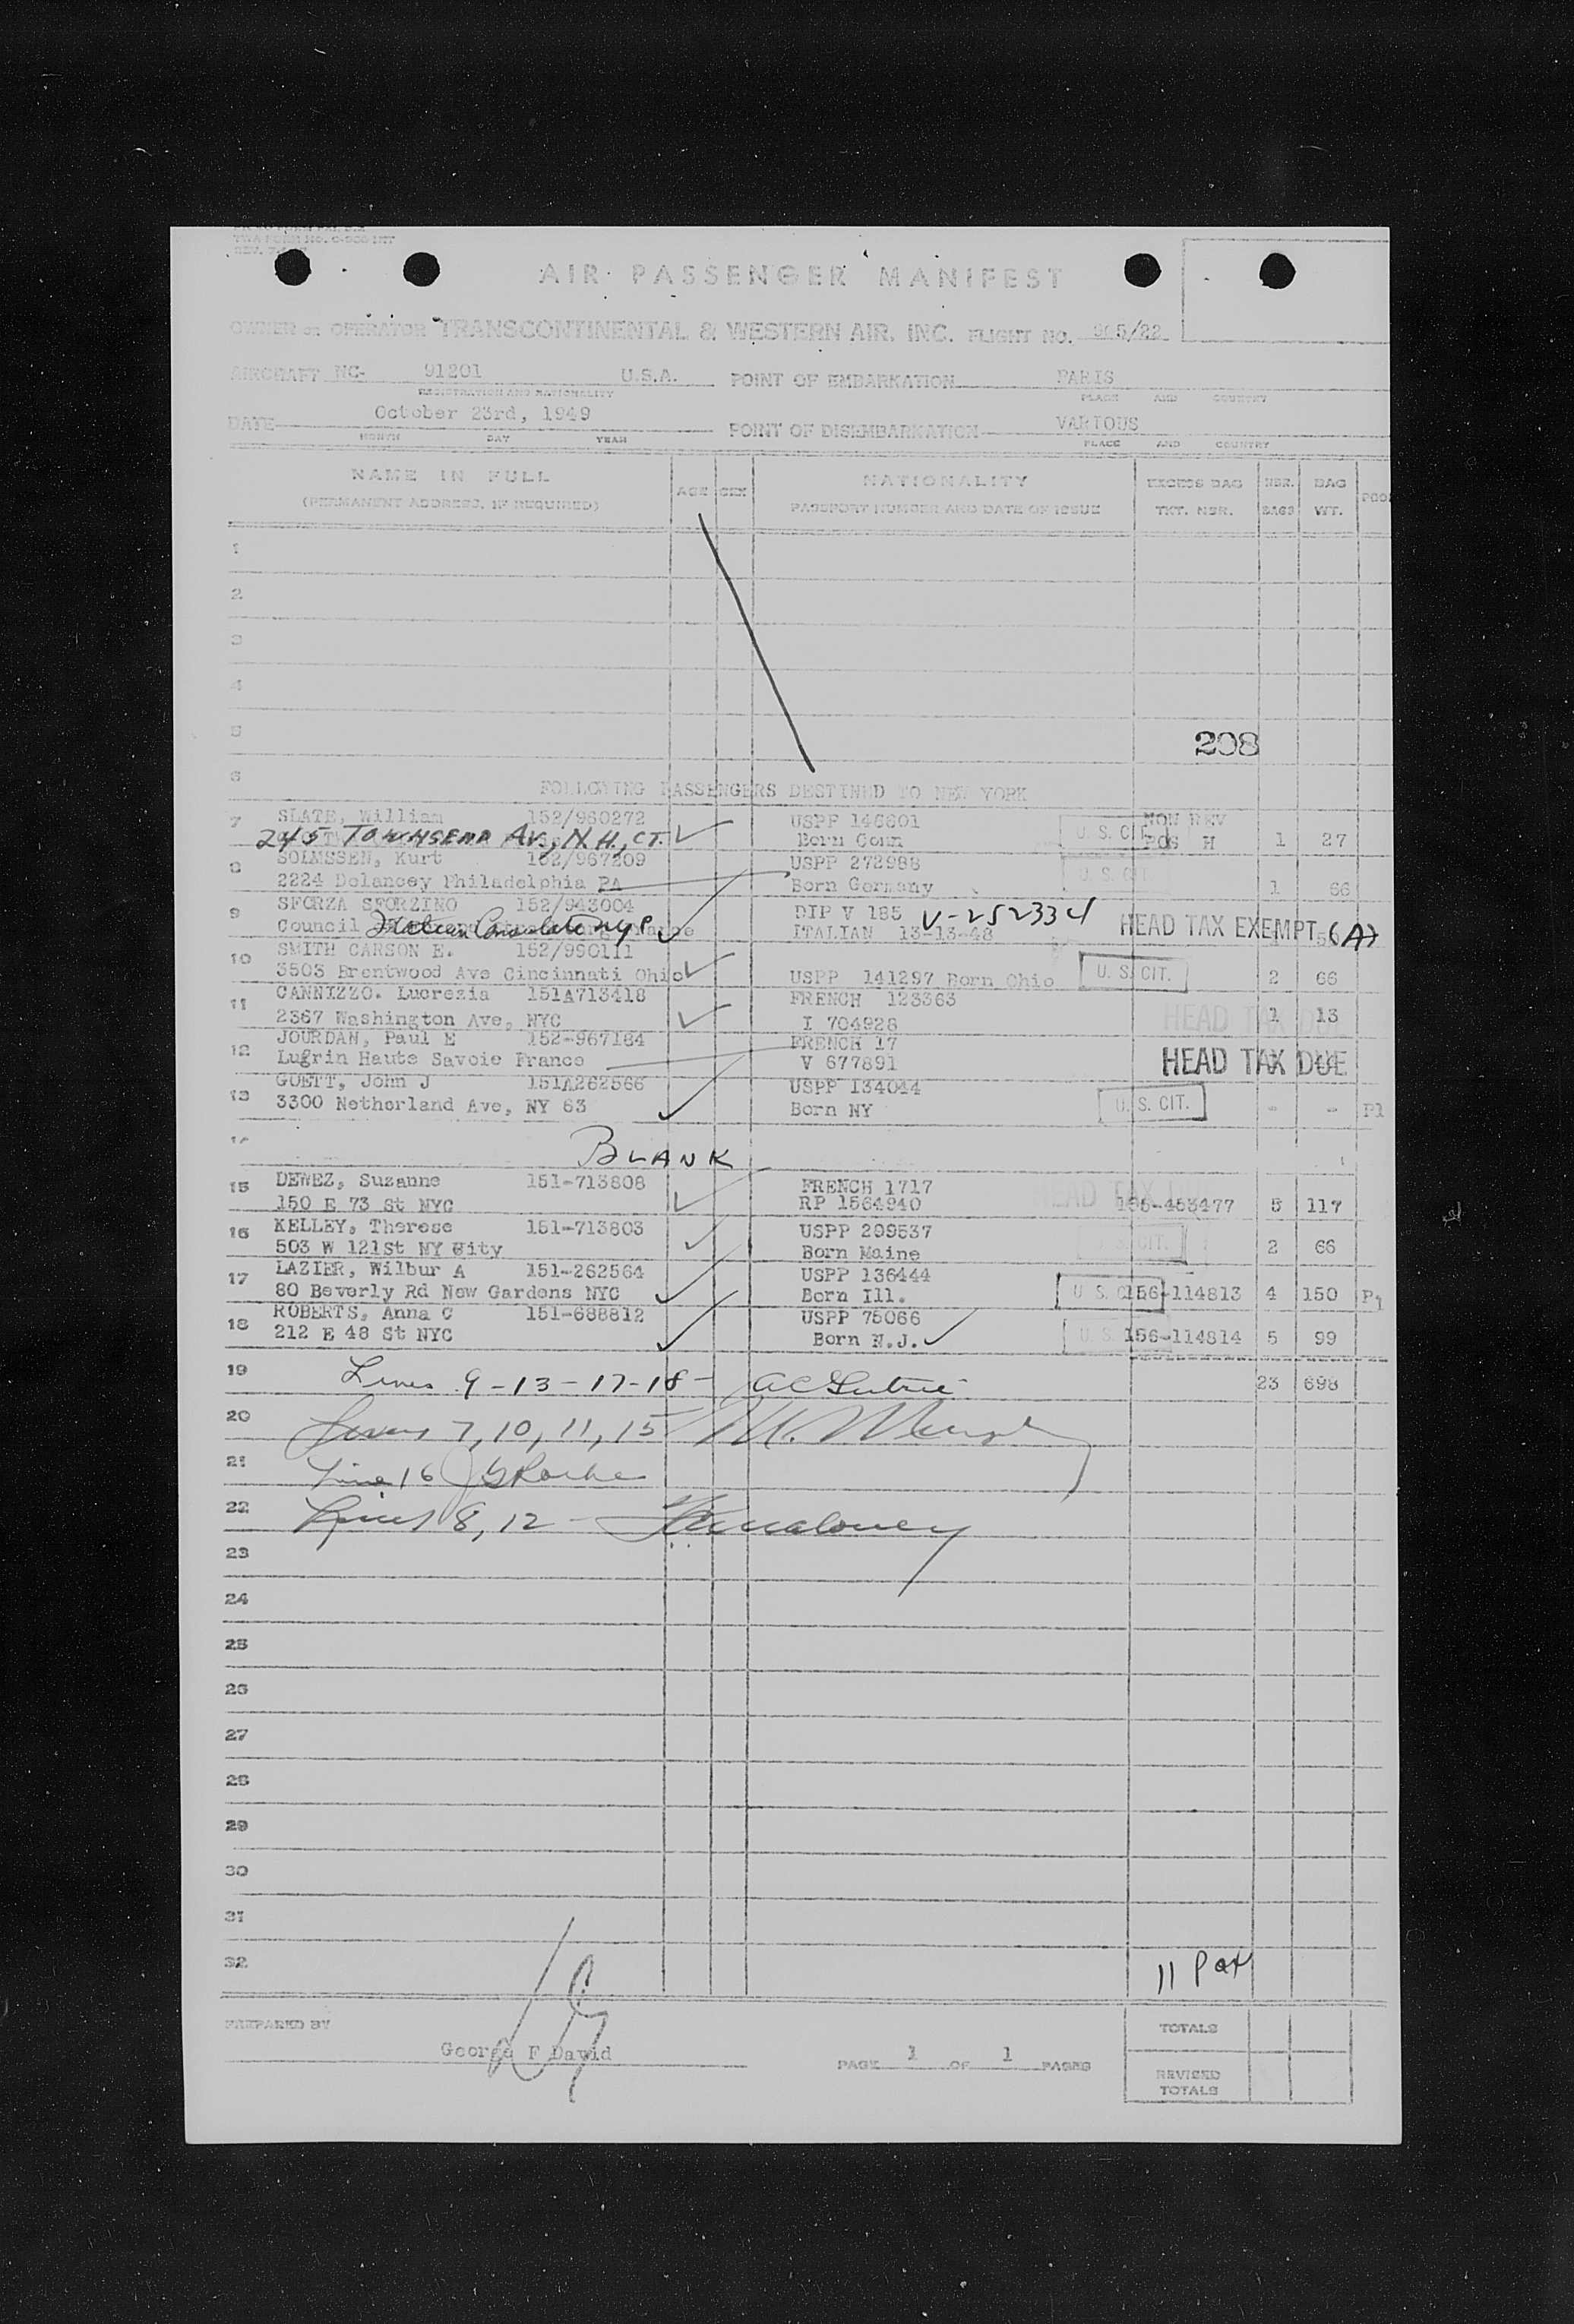 TWA FORM No.
AIR PASSENGER MANIFEST
OWNER or OPERATOR TRANSCONTINENTAL & WESTERN AIR, INC. FLIGHT NO. /22
AIRCRAFT NC- 91201 U.S.A. POINT OF EMBARKATION PARIS
REGISTRATION AND NATIONALITY PLACE AND COUNTRY
DATE October 23rd, 1949 POINT OF DISEMBARKATION VARIOUS
MONTH DAY YEAR PLACE AND COUNTRY
NAME IN FULL AGE SEX NATIONALITY EXCESS BAG NBR. BAG
(PERMANENT ADDRESS, IF REQUIRED) PASSPORT NUMBER AND DATE OF ISSUE TKT. NBR. BAGS WT.
1
2
3
4
5 208
6 FOLLOWING PASSENGERS DESTINED TO NEW YORK
7 SLATE, William 152/960272 USPP 146601 NON REV
245 TOWNSEND AV., N.H., CT. Born Conn U. S. CIT. POS H 1 27
8 SOLMSSEN, Kurt 152/967209 USPP 272988 U. S. CIT.
2224 Delancey Philadelphia PA Born Germany 1 66
9 SFORZA SFORZINO 152/943004 DIP V 185 V-252334 HEAD TAX EXEMPT (A)
Council Italian Consulate NYC ITALIAN 13-13-48
10 SMITH CARSON E. 152/990111
3503 Brentwood Ave Cincinnati Ohio USPP 141297 Born Ohio U. S. CIT. 2 66
11 CANNIZZO. Lucrezia 151A713418 FRENCH 123363
2367 Washington Ave, NYC I 704928 HEAD TAX DUE 1 13
12 JOURDAN, Paul E 152-967184 FRENCH 17
Lugrin Haute Savoie France V 677891 HEAD TAX DUE
13 GOETT, John J 151A262566 USPP 134044
3300 Netherland Ave, NY 63 Born NY U. S. CIT. - - P1
14 BLANK
15 DEWEZ, Suzanne 151-713808 FRENCH 1717 HEAD TAX DUE
150 E 73 St NYC RP 1564940 156-453477 5 117
16 KELLEY, Therese 151-713803 USPP 209537
503 W 121St NY City Born Maine CIT. 2 66
17 LAZIER, Wilbur A 151-262564 USPP 136444
80 Beverly Rd New Gardens NYC Born Ill. U. S. CIT. 156-114813 4 150 P1
18 ROBERTS, Anna C 151-688812 USPP 75066
212 E 48 St NYC Born N.J. U. S. 156-114814 5 99
19 Lines 9-13-17-18- 23 698
20 Lines 7, 10, 11, 15 M. Murphy
21 Line 16 Roche
22 Lines 8, 12 - Maloney
23
24
25
26
27
28
29
30
31
32 11 Pax
PREPARED BY George F David PAGE 1 OF 1 PAGES
TOTALS
REVISED TOTALS